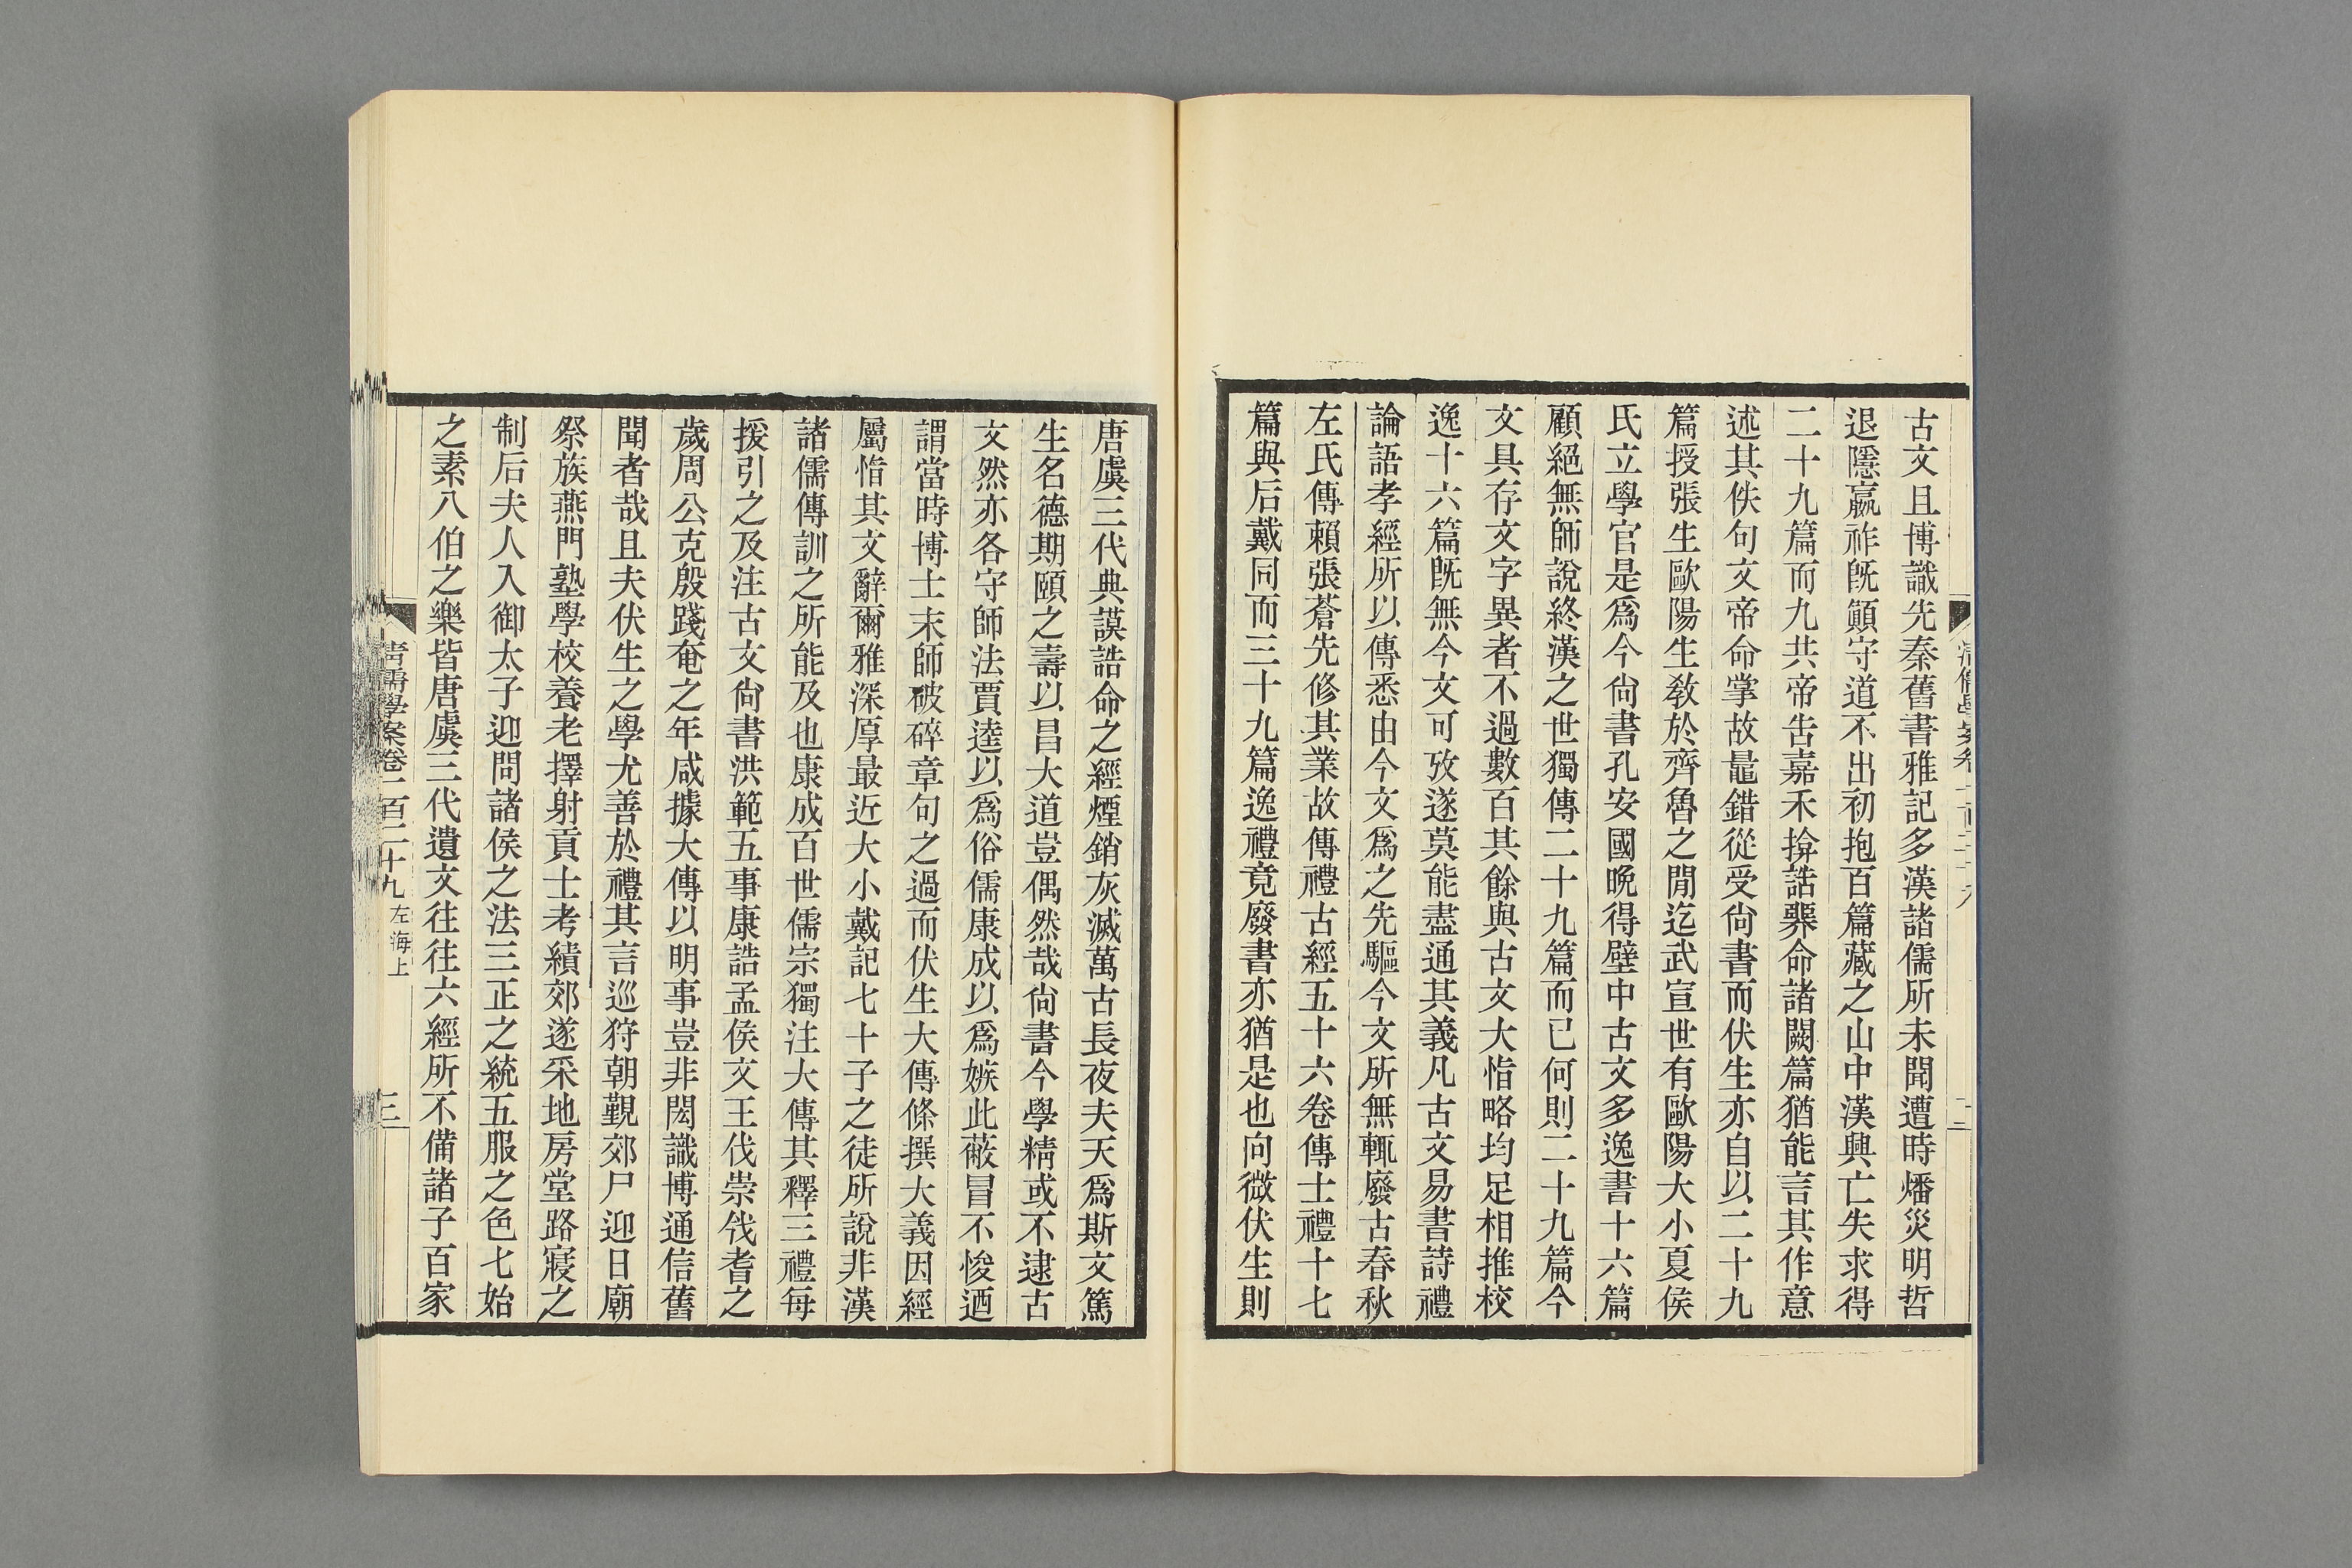 古文且博識先秦舊書雅記多漢諸儒所未聞遭時燔災明哲
退隱嬴祚旣顚守道不出初抱百篇藏之山中漢興亡失求得
二十九篇而九共帝告嘉禾揜誥臩命諸闕篇猶能言其作意
述其佚句文帝命掌故鼂錯從受尙書而伏生亦自以二十九
篇授張生歐陽生敎於齊魯之閒迄武宣世有歐陽大小夏侯
氏立學官是爲今尙書孔安國晚得壁中古文多逸書十六篇
顧絕無師說終漢之世獨傳二十九篇而已何則二十九篇今
文具存文字異者不過數百其餘與古文大恉略均足相推校
逸十六篇旣無今文可攷遂莫能盡通其義凡古文易書詩禮
論語孝經所以傳悉由今文爲之先驅今文所無輒廢古春秋
左氏傳賴張蒼先修其業故傳禮古經五十六卷傳士禮十七
篇與后戴同而三十九篇逸禮竟廢書亦猶是也向微伏生則
唐虞三代典謨誥命之經煙銷灰滅萬古長夜夫天爲斯文篤
生名德期頤之壽以昌大道豈偶然哉尙書今學精或不逮古
文然亦各守師法賈逵以爲俗儒康成以爲嫉此蔽冒不悛迺
謂當時博士末師破碎章句之過而伏生大傳條撰大義因經
屬恉其文辭爾雅深厚最近大小戴記七十子之徒所說非漢
諸儒傳訓之所能及也康成百世儒宗獨注大傳其釋三禮每
援引之及注古文尙書洪範五事康誥孟侯文王伐崇伐耆之
歲周公克殷踐奄之年咸據大傳以明事豈非閎識博通信舊
聞者哉且夫伏生之學尤善於禮其言巡狩朝覲郊尸迎日廟
祭族燕門塾學校養老擇射貢士考績郊遂采地房堂路寢之
制后夫人入御太子迎問諸侯之法三正之統五服之色七始
之素八伯之樂皆唐虞三代遺文往往六經所不備諸子百家
清儒學案卷一百二十九 左海上
三